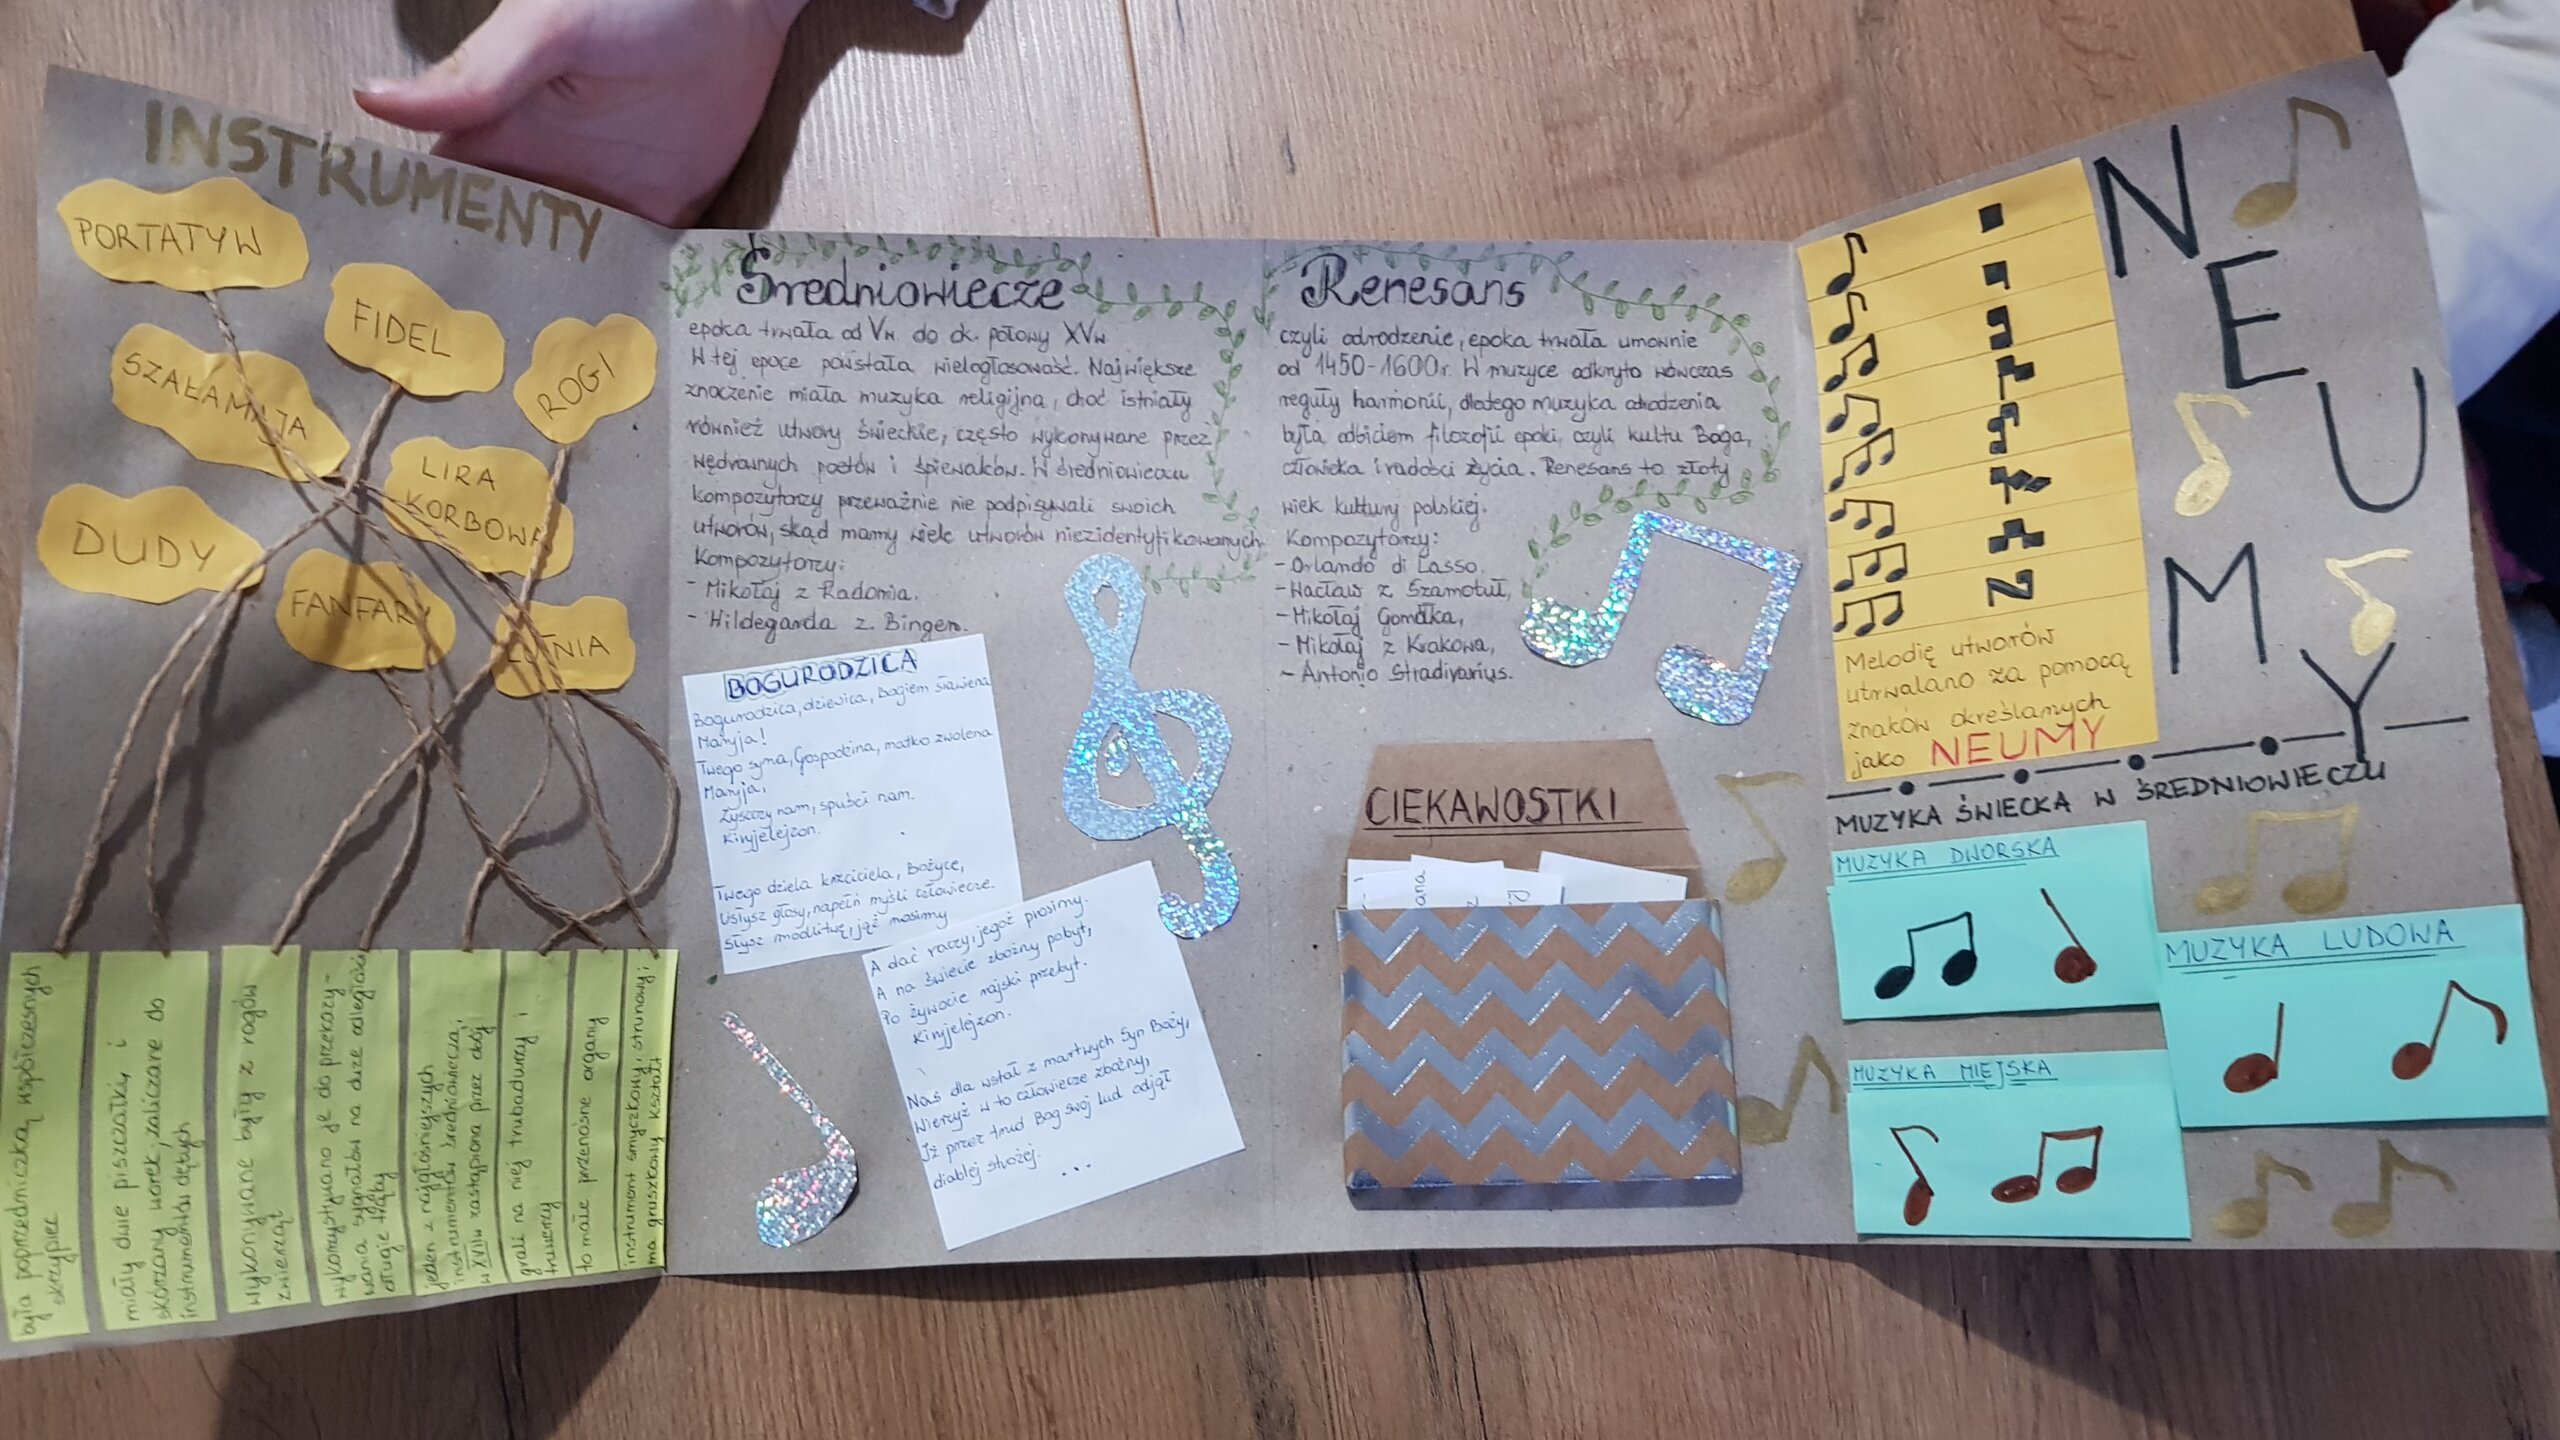 INSTRUMENTY
PORTATYW
FIDEL
ROGI
SZAŁAMAJA
LIRA
KORBOWA
DUDY
FANFARY
LUTNIA
była poprzedniczką współczesnych
skrzypiec
miały dwie piszczałki i
skórzany worek, zaliczane do
instrumentów dętych
wykonywane były z rogów
zwierząt
wykorzystywano je do przekazy-
wania sygnałów na duże odległości
długie trąby
jeden z najgłośniejszych
instrumentów średniowiecza,
w XVIIw zastąpiona przez obój
grali na niej trubadurzy i
truwerzy
to małe przenośne organy
instrument smyczkowy, strunowy;
ma gruszkowy kształt
Średniowiecze
epoka trwała od Vw. do ok. połowy XVw
W tej epoce powstała wielogłosowość. Największe
znaczenie miała muzyka religijna, choć istniały
również utwory świeckie, często wykonywane przez
wędrownych poetów i śpiewaków. W średniowieczu
kompozytorzy przeważnie nie podpisywali swoich
utworów, skąd mamy wiele utworów niezidentyfikowanych.
Kompozytorzy:
- Mikołaj z Radomia.
- Hildegarda z Bingen.
BOGURODZICA
Bogurodzica, dziewica, Bogiem sławiena
Maryja!
Twego syna, Gospodzina, matko zwolena
Maryja,
Zyszczy nam, spuści nam.
Kiryjelejzon.
Twego dziela krzciciela, Bożyce,
Usłysz głosy, napełń myśli człowiecze.
Słysz modlitwę, jąż nosimy
A dać raczy, jegoż prosimy.
A na świecie zbożny pobyt,
Po żywocie rajski przebyt.
Kiryjelejzon.
Nas dla wstał z martwych Syn Boży,
Wierzyż w to człowiecze zbożny,
Iż przez trud Bog swój lud odjął
diablej strożej.
...
Renesans
czyli odrodzenie, epoka trwała umownie
od 1450-1600r. W muzyce odkryto wówczas
reguły harmonii, dlatego muzyka odrodzenia
była odbiciem filozofii epoki, czyli kultu Boga,
człowieka i radości życia. Renesans to złoty
wiek kultury polskiej.
Kompozytorzy:
- Orlando di Lasso.
- Wacław z Szamotuł,
- Mikołaj Gomółka,
- Mikołaj z Krakowa,
- Antonio Stradivarius.
CIEKAWOSTKI
NEUMY
Melodię utworów
utrwalano za pomocą
znaków określanych
jako NEUMY
MUZYKA ŚWIECKA W ŚREDNIOWIECZU
MUZYKA DWORSKA
MUZYKA LUDOWA
MUZYKA MIEJSKA